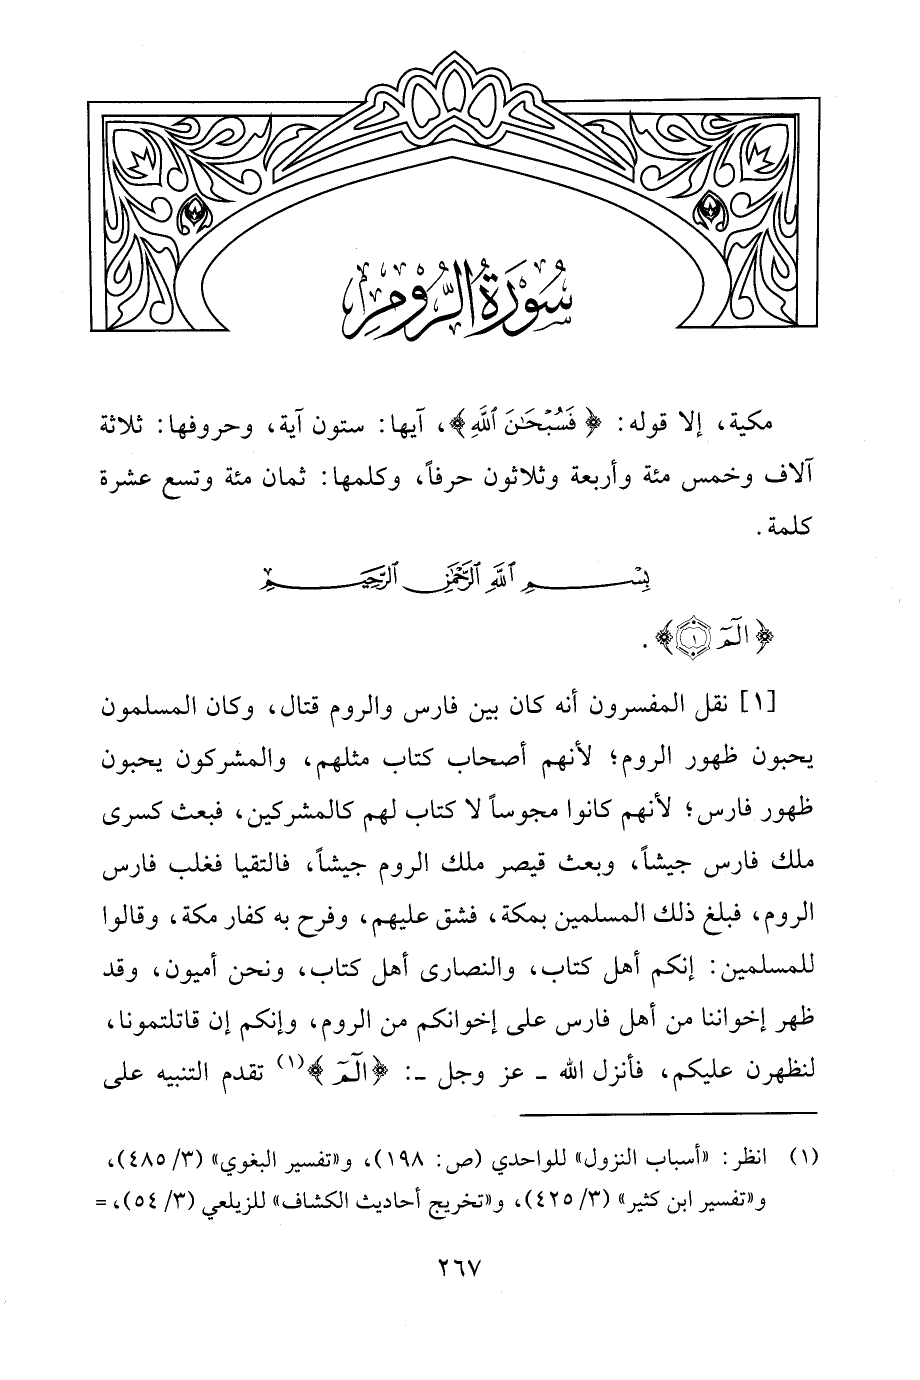 سُورَةُ الرُّومِ
مكية، إلا قوله: ﴿فَسُبْحَٰنَ ٱللَّهِ﴾، آيها: ستون آية، وحروفها: ثلاثة
آلاف وخمس مئة وأربعة وثلاثون حرفاً، وكلمها: ثمان مئة وتسع عشرة
كلمة.
بِسْمِ ٱللَّهِ ٱلرَّحْمَٰنِ ٱلرَّحِيمِ
﴿الٓمٓ ١﴾.
[١] نقل المفسرون أنه كان بين فارس والروم قتال، وكان المسلمون
يحبون ظهور الروم؛ لأنهم أصحاب كتاب مثلهم، والمشركون يحبون
ظهور فارس؛ لأنهم كانوا مجوساً لا كتاب لهم كالمشركين، فبعث كسرى
ملك فارس جيشاً، وبعث قيصر ملك الروم جيشاً، فالتقيا فغلب فارس
الروم، فبلغ ذلك المسلمين بمكة، فشق عليهم، وفرح به كفار مكة، وقالوا
للمسلمين: إنكم أهل كتاب، والنصارى أهل كتاب، ونحن أميون، وقد
ظهر إخواننا من أهل فارس على إخوانكم من الروم، وإنكم إن قاتلتمونا،
لنظهرن عليكم، فأنزل الله ـ عز وجل ـ: ﴿الٓمٓ﴾(١) تقدم التنبيه على
(١) انظر: «أسباب النزول» للواحدي (ص: ١٩٨)، و«تفسير البغوي» (٣/ ٤٨٥)،
و«تفسير ابن كثير» (٣/ ٤٢٥)، و«تخريج أحاديث الكشاف» للزيلعي (٣/ ٥٤)، =
٢٦٧